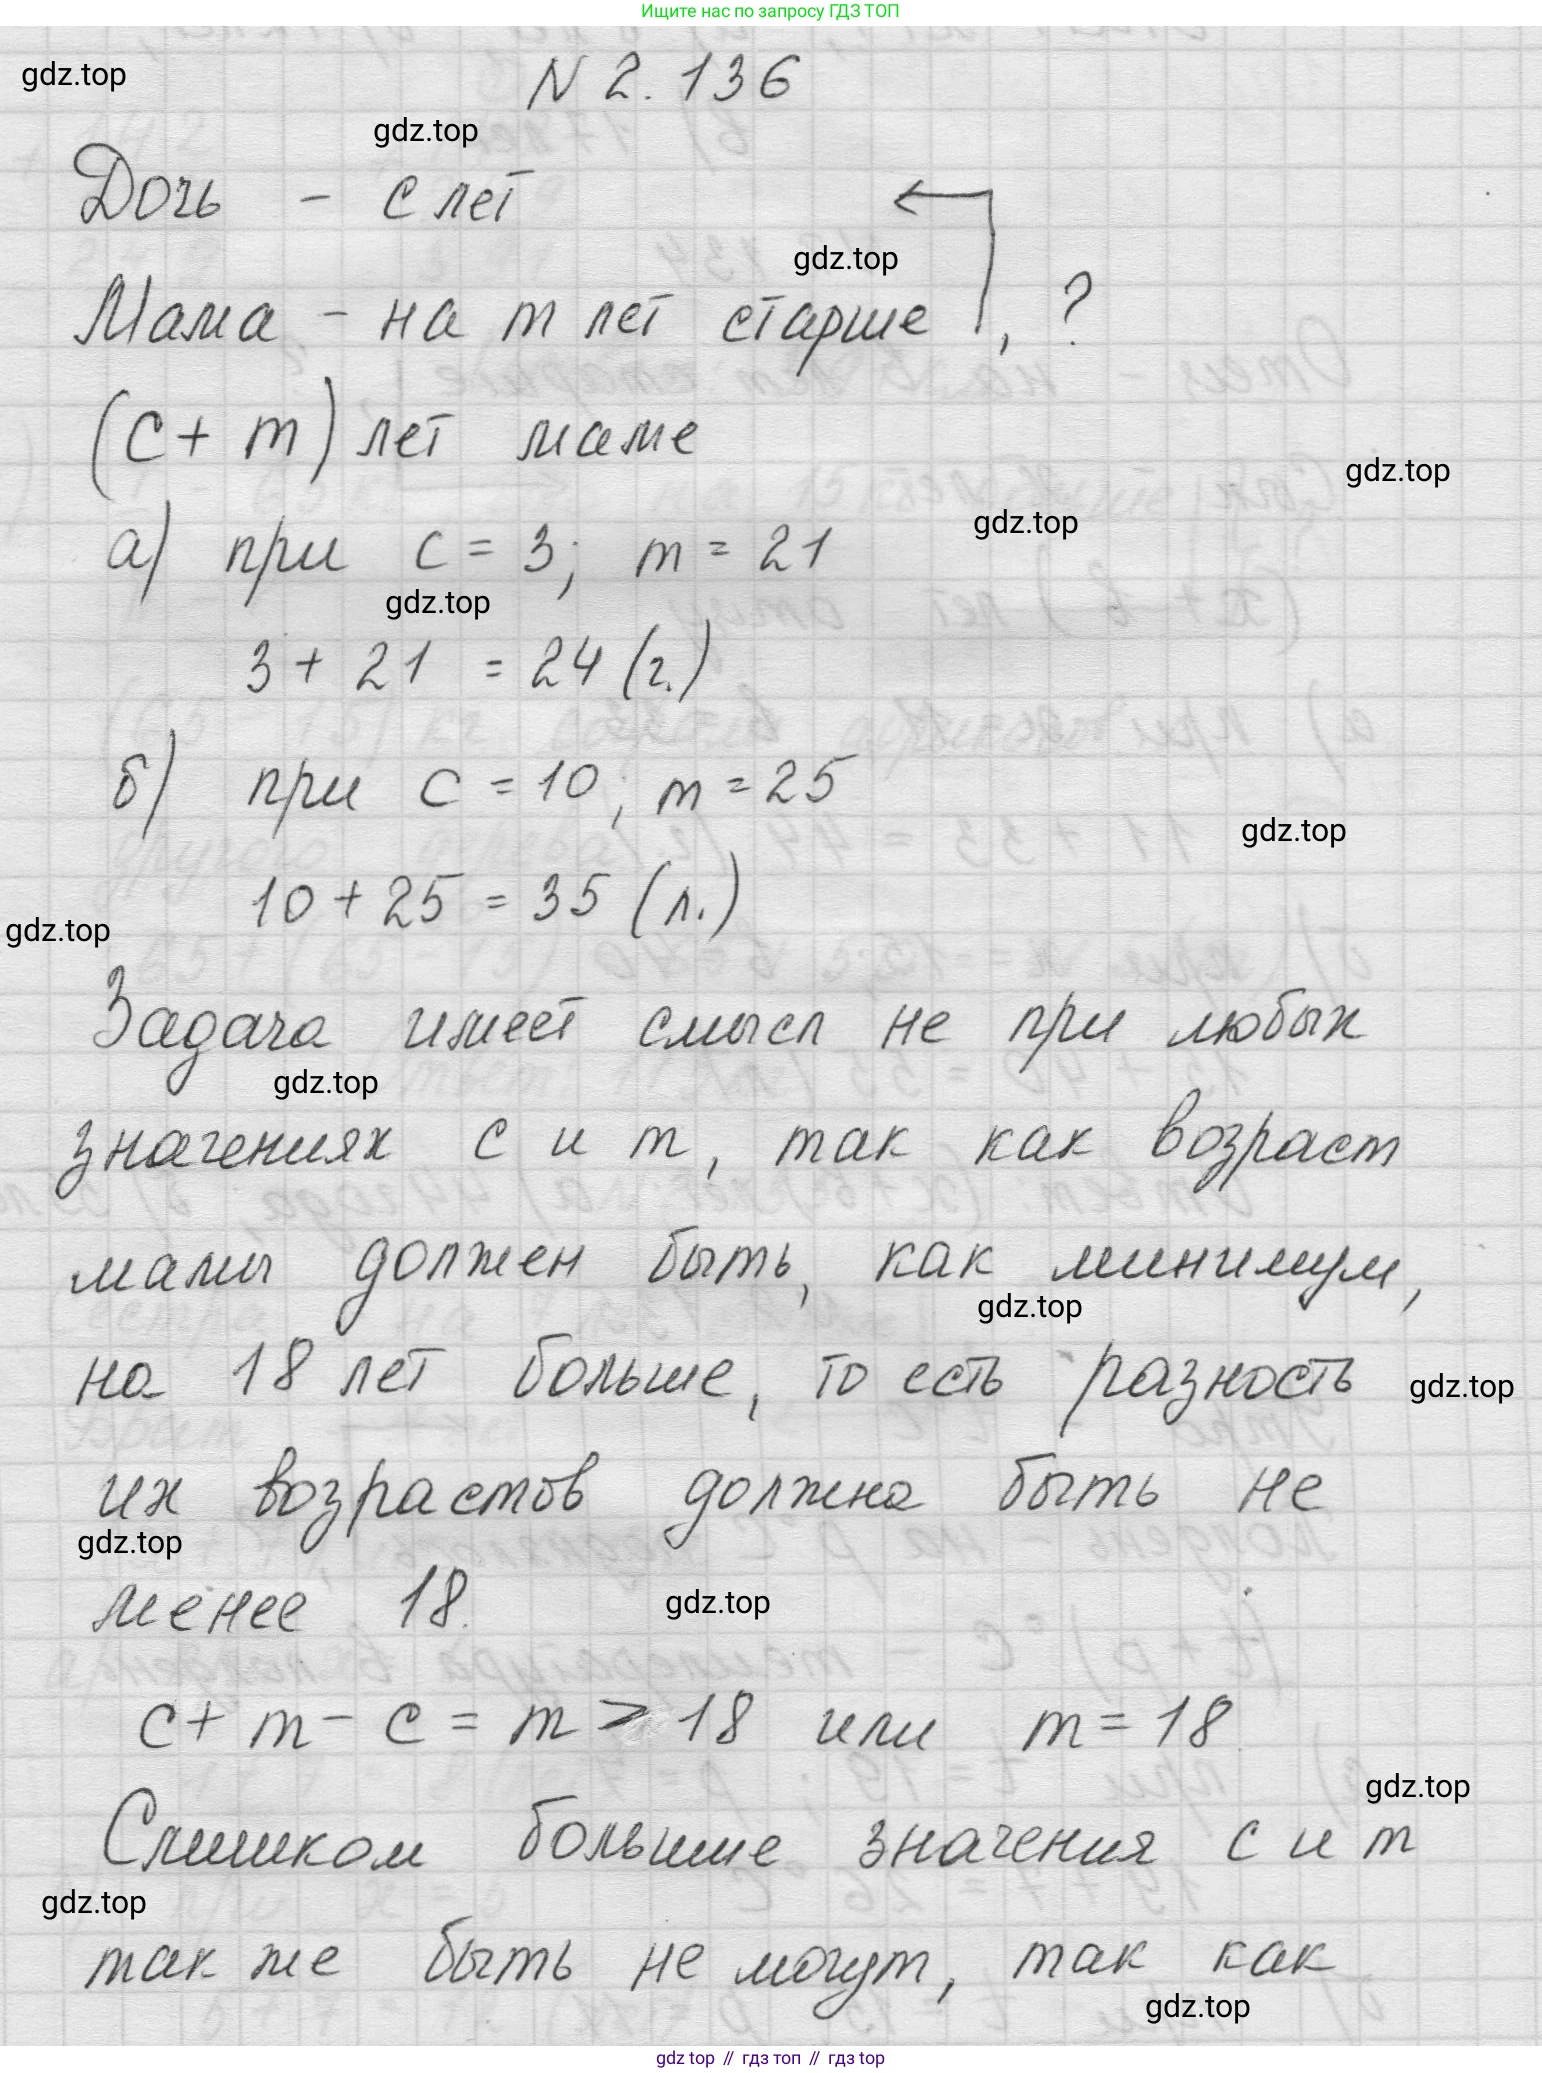 Ищите нас по запросу ГДЗ ТОП
N 2.136
gdz.top
gdz.top
Дочь - с лет
gdz.top
Мама - на m лет старше, ?
(c + m) лет маме
gdz.top
gdz.top
а) при c = 3; m = 21
gdz.top
3 + 21 = 24 (г.)
б) при c = 10; m = 25
gdz.top
10 + 25 = 35 (л.)
gdz.top
Задача имеет смысл не при любых
gdz.top
значениях с и m, так как возраст
мамы должен быть, как минимум,
gdz.top
на 18 лет больше, то есть разность
gdz.top
их возрастов должна быть не
gdz.top
менее 18.
gdz.top
c + m - c = m > 18 или m = 18.
gdz.top
Слишком большие значения с и m
gdz.top
так же быть не могут, так как
gdz.top
gdz top // гдз топ // gdz.top